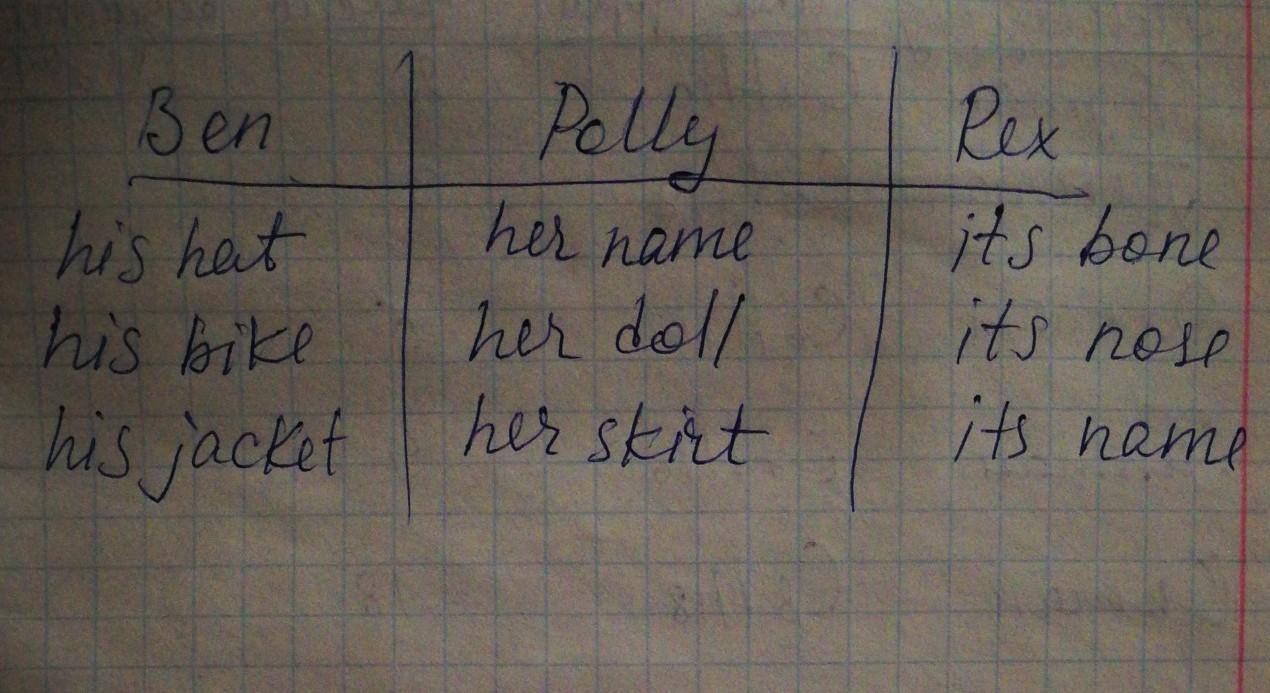 Ben Polly Rex
his hat her name its bone
his bike her doll its nose
his jacket her skirt its name